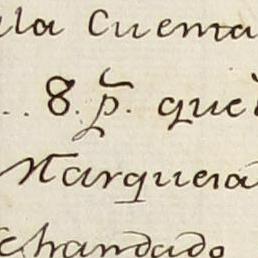 ala Cuenta
.. 8. p̃. que
Marqueia
chandado